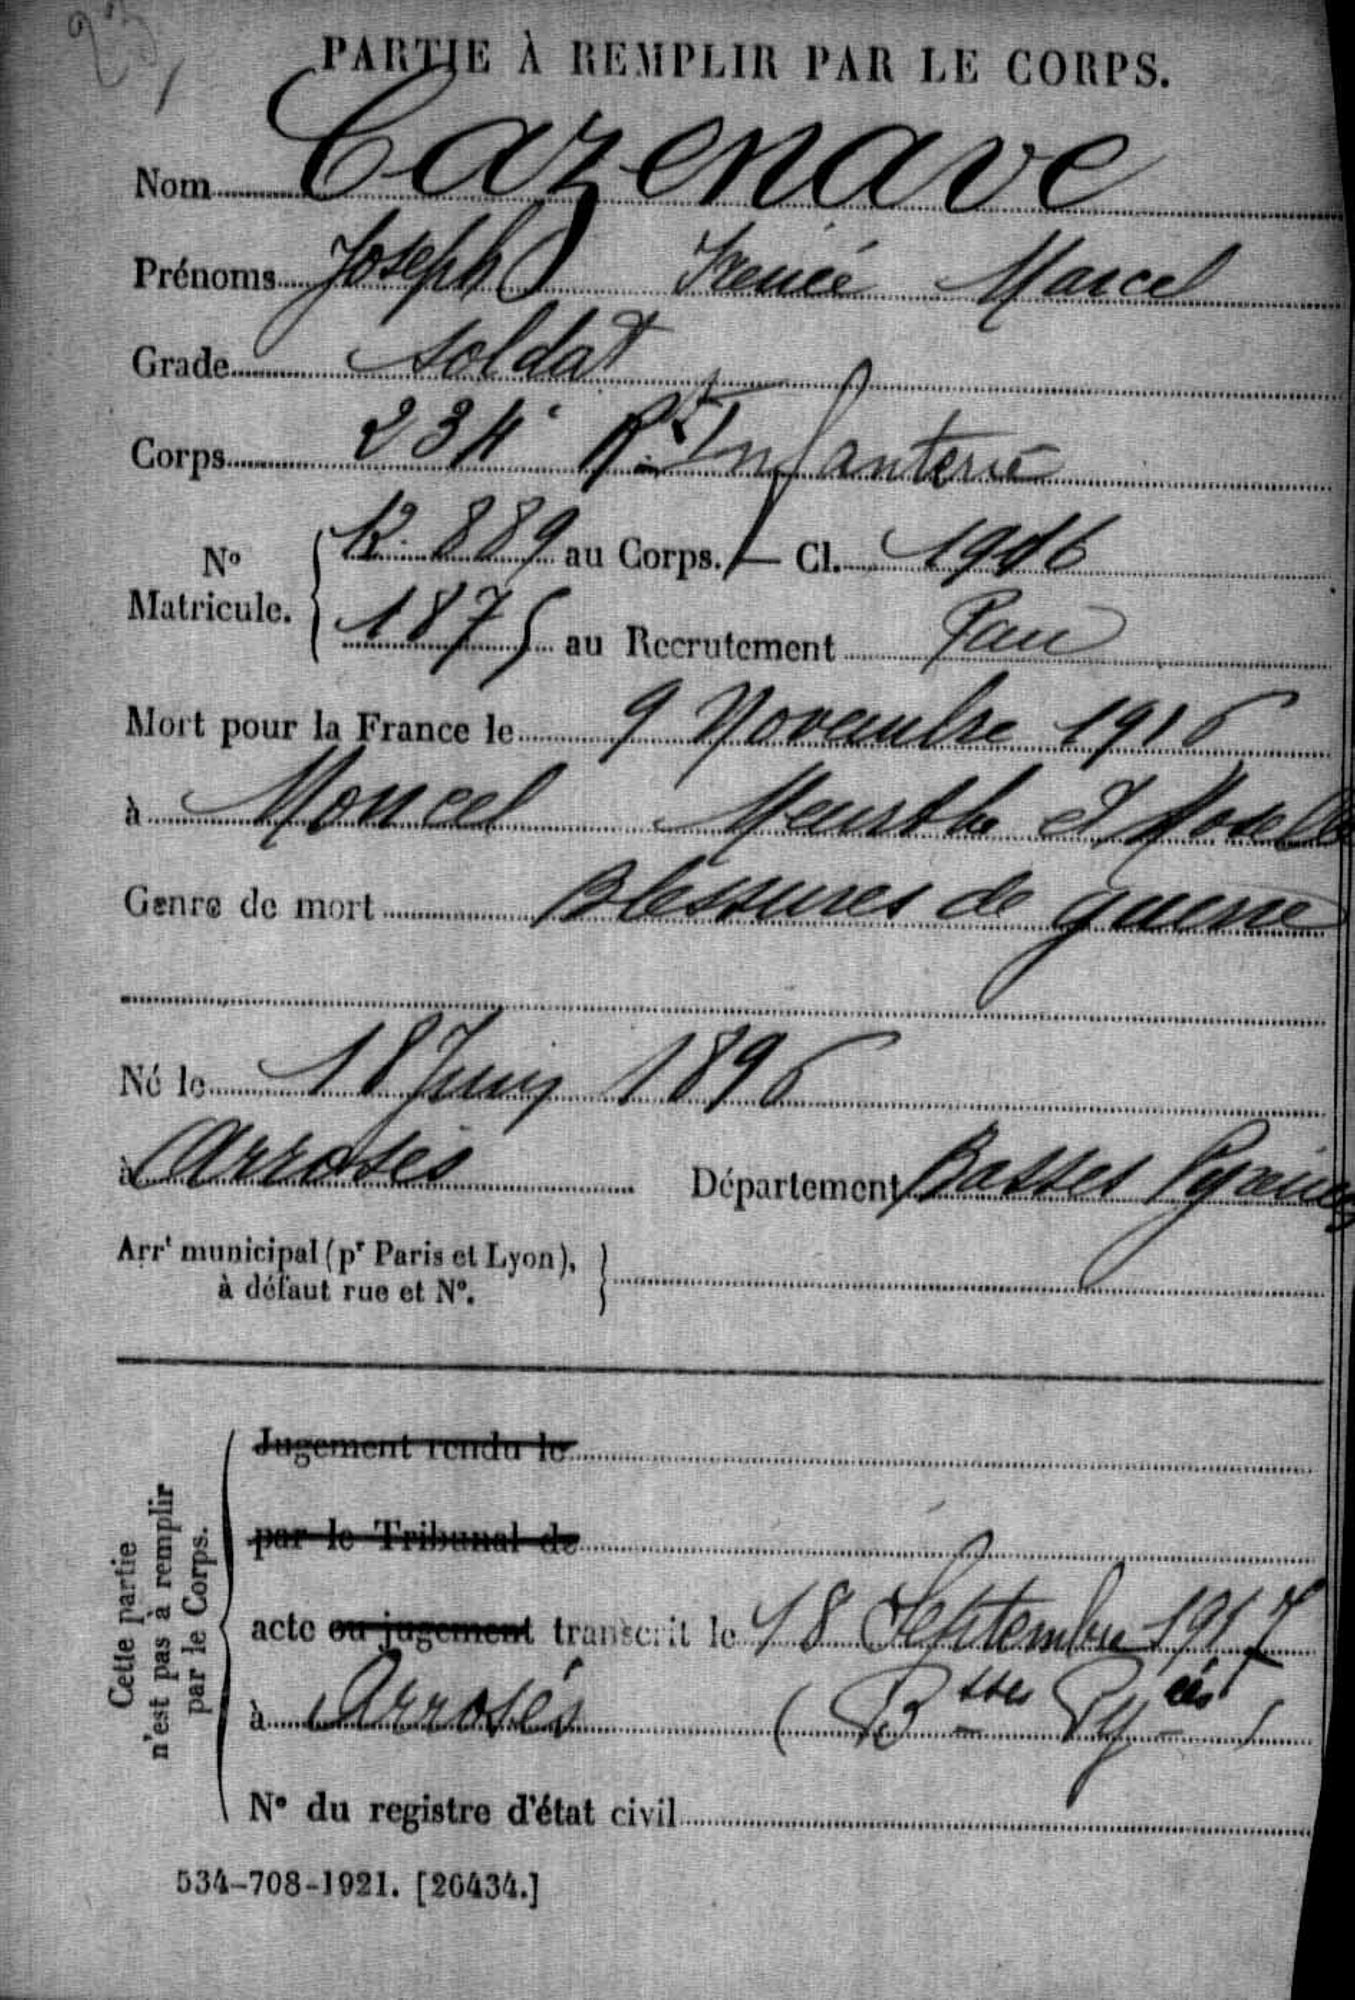 23,
PARTIE À REMPLIR PAR LE CORPS.
Nom Cazenave
Prénoms Joseph Irénée Marcel
Grade Soldat
Corps 234e Rt Infanterie
No Matricule. { 12.889 au Corps. — Cl. 1916
1875 au Recrutement Pau
Mort pour la France le 9 Novembre 1916
à Moncel Meurthe et Moselle
Genre de mort Blessures de guerre
Né le 18 Juin 1896
à Arrosès Département Basses Pyrénées
Arrt municipal (pr Paris et Lyon),
à défaut rue et No. }
Cette partie
n'est pas à remplir
par le Corps.
Jugement rendu le
par le Tribunal de
acte ou jugement transcrit le 18 Septembre 1917
à Arrosés (Bsses Pyées)
No du registre d'état civil
534-708-1921. [26434.]